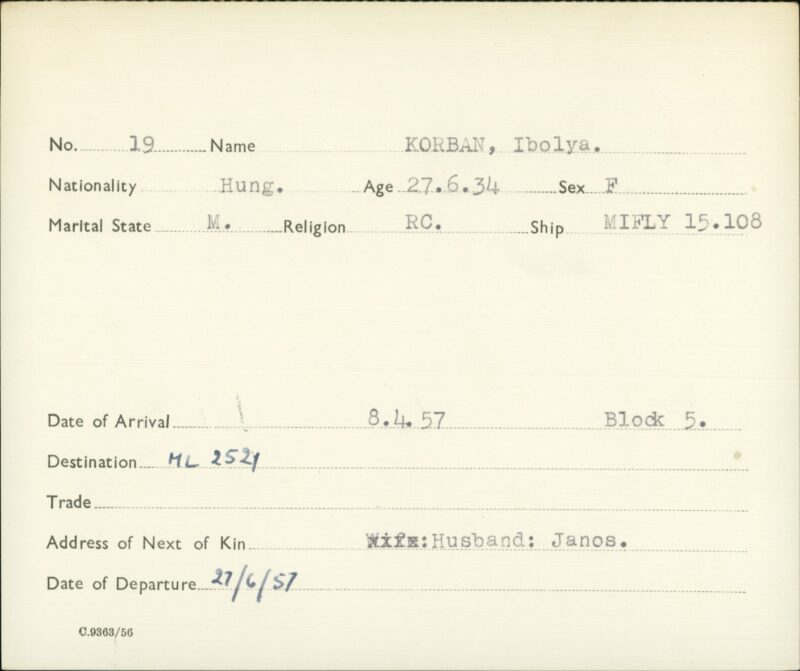 No. 19 Name KORBAN, Ibolya.
Nationality Hung. Age 27.6.34 Sex F
Marital State M. Religion RC. Ship MIFLY 15.108
Date of Arrival 8.4.57 Block 5.
Destination ML 2521
Trade
Address of Next of Kin Wife: Husband: Janos.
Date of Departure 27/6/57
C.9363/56